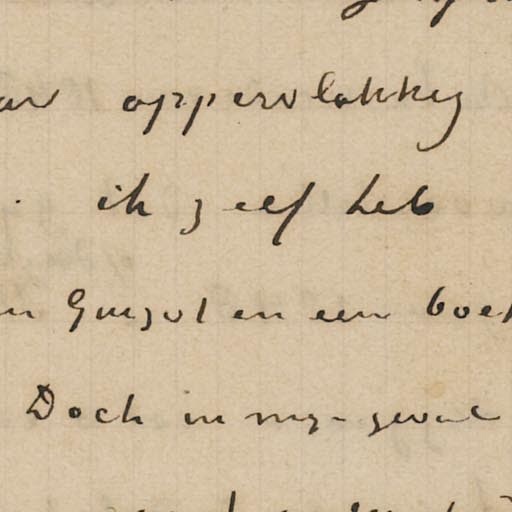 oppervlakkig
ik zelf heb
Guizot en een boek
Doch in mijn geval